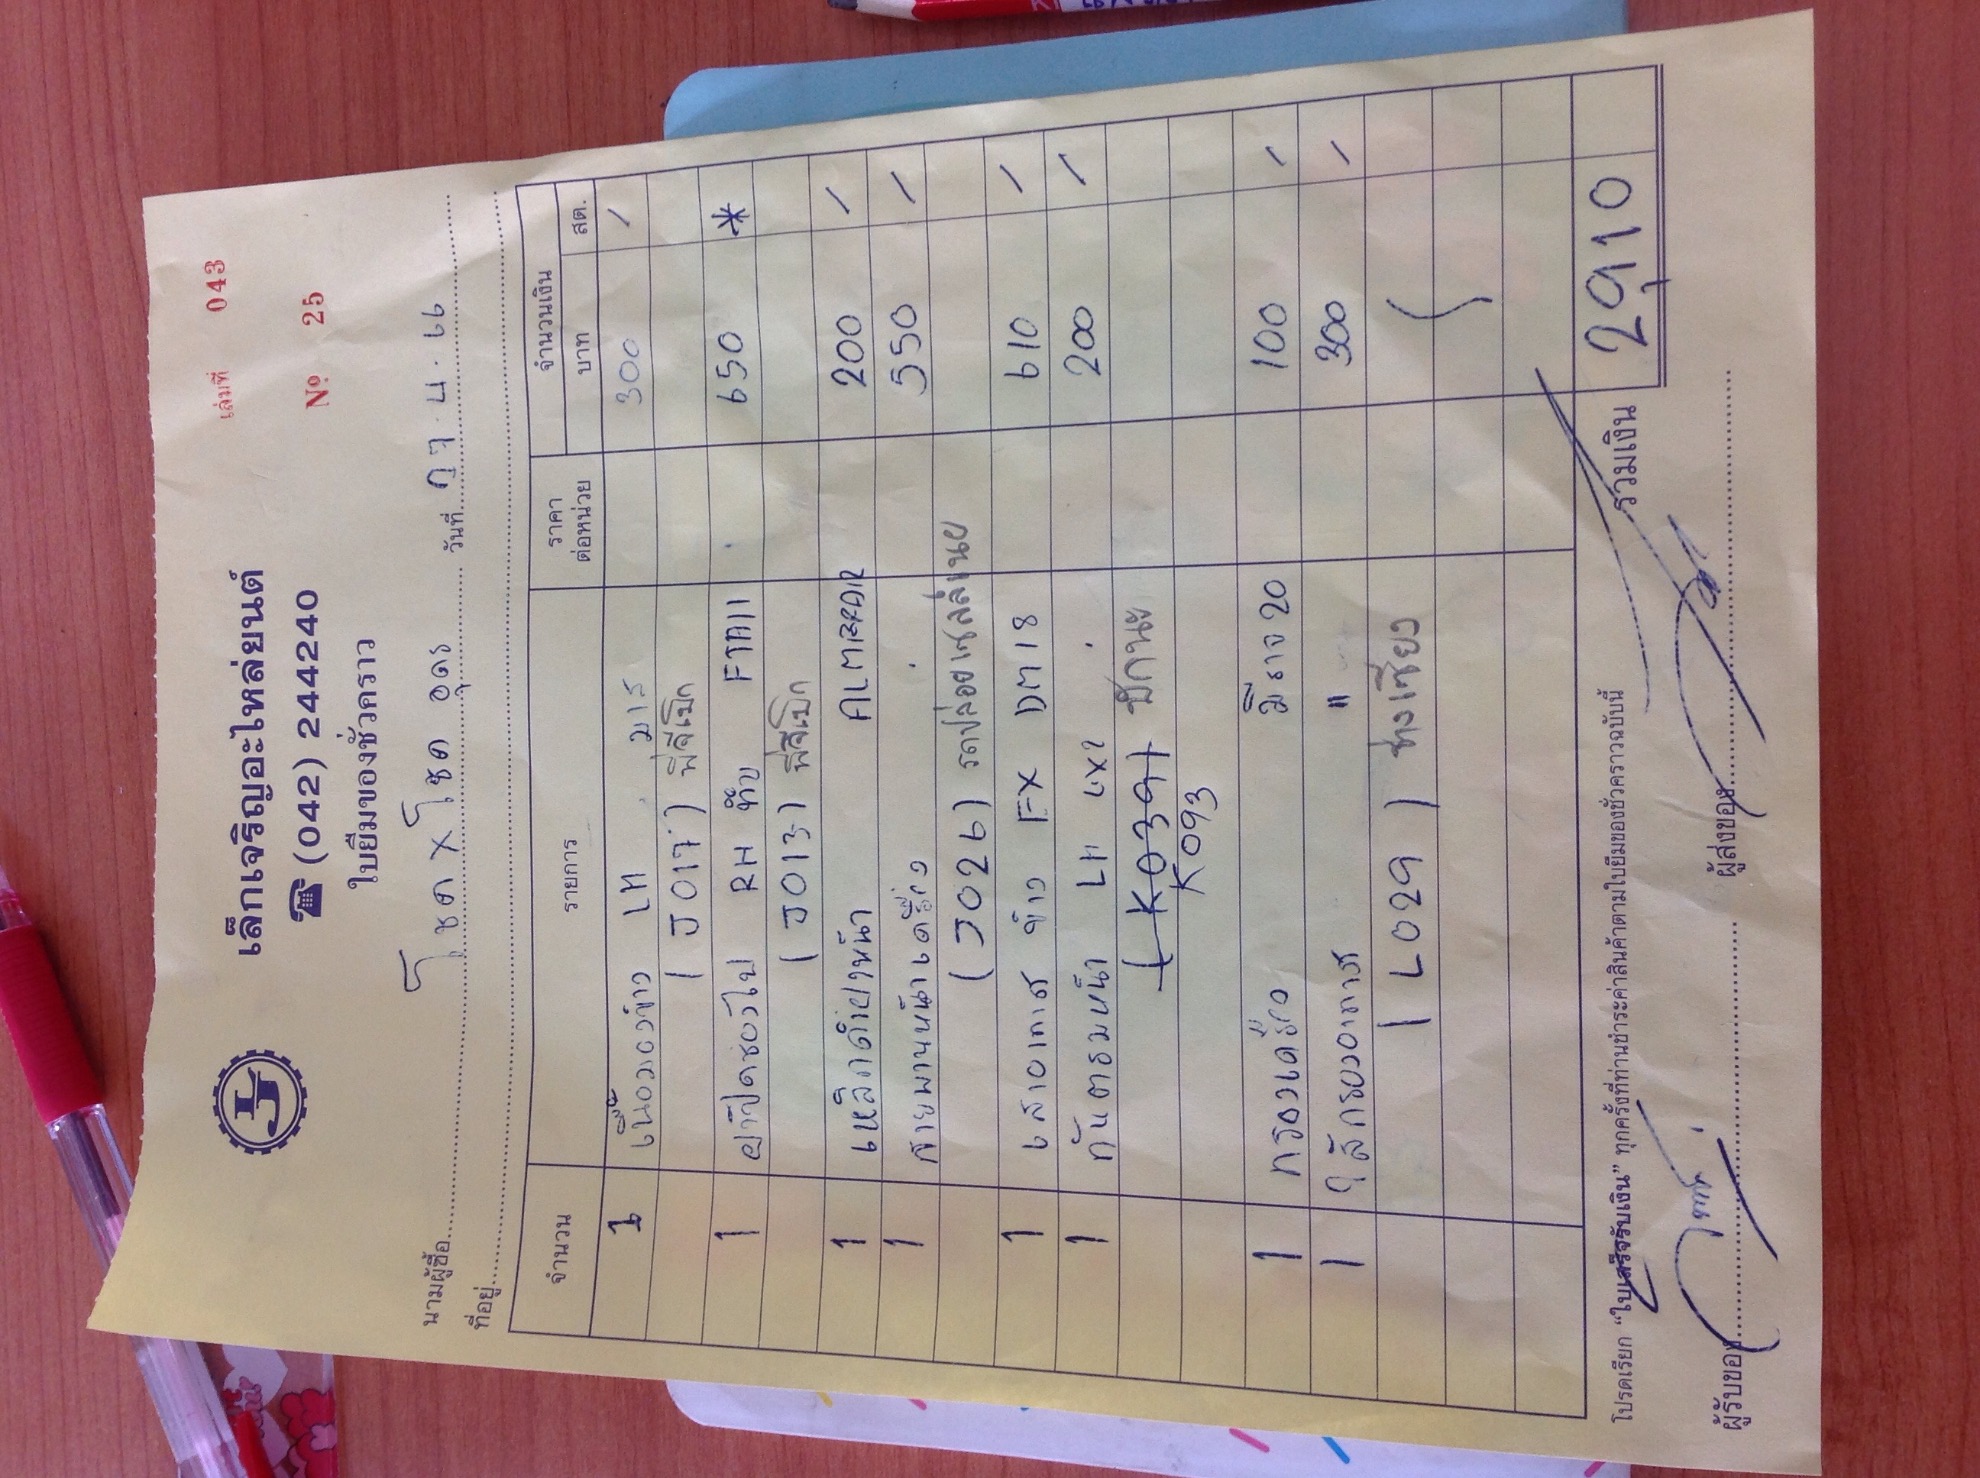 เล่มที่ 043
เล็กเจริญอะไหล่ยนต์
☎ (042) 244240
Nº 25
ใบยืมของชั่วคราว
นามผู้ซื้อ โชค X โชค อุดร วันที่
ที่อยู่
จำนวน รายการ ราคาต่อหน่วย จำนวนเงิน
บาท สต.
1 LH 300 /
( J017 ) พี่จีเบิก
1 RH ทึบ FTR11 650 *
( J013 ) พี่จีเบิก
1 เหล็กค้ำยางหน้า ALMERAR 200 /
1 สายพานหน้าเครื่อง 550 /
( J026 )
1 เสาอากาศ ข้าง EX DM18 610 /
1 กันตรมหน้า LH 200 /
( K039 )
K093
1 กรองเครื่อง มิราจ 20 100 /
1 ไส้กรองอากาศ " 300 /
( L029 )
โปรดเรียก “ใบเสร็จรับเงิน” ทุกครั้งที่ท่านชำระค่าสินค้าตามใบยืมของชั่วคราวฉบับนี้ รวมเงิน 2910
ผู้รับของ ผู้ส่งของ